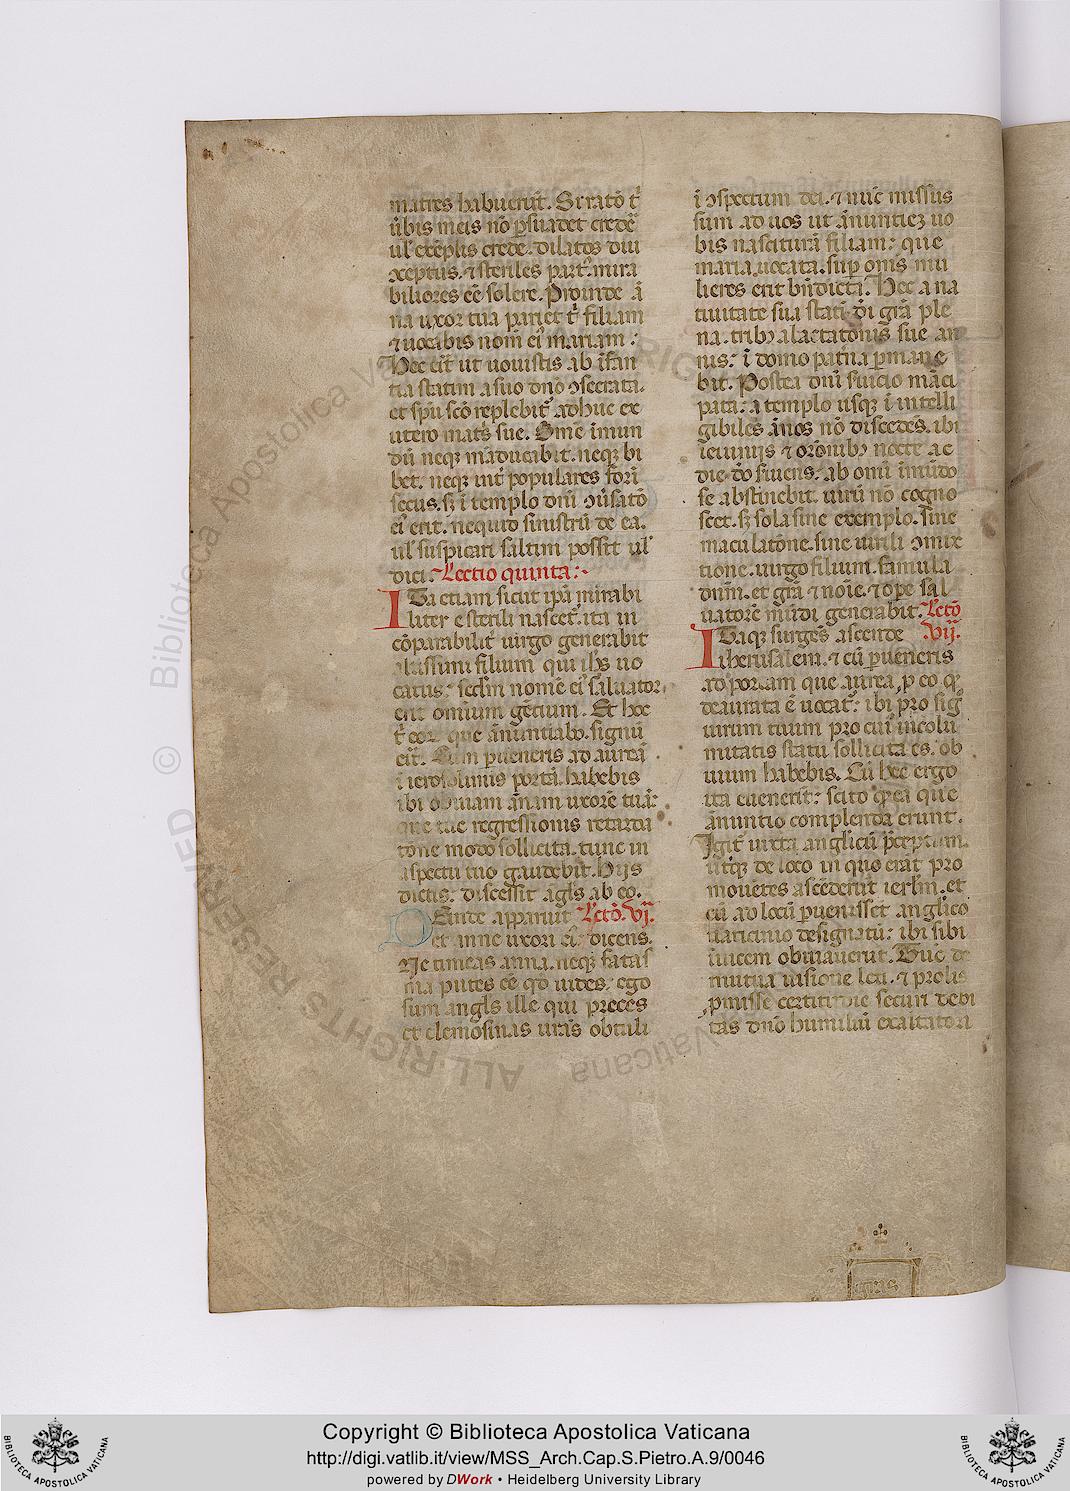 matres habuerūt. Si ratō t̄
ūbis meis nō ꝑsuadet credē
ul' exēplis crede. dilatos diu
ↄceptus. ⁊ steriles part᷑. mira
biliores eē solere. Proinde ā
na uxor tua pariet t̄ filiam
⁊ uocabis nom̄ ei᷒ mariam:
Hec erit ut uouistis ab īfan
tia statim a suo dn̄o ↄsecrata.
et sp̄u sc̄o replebit᷑. adhuc ex
utero matr̄s sue. Om̄e īmun
dū neqꝫ māducabit. neqꝫ bi
bet. neqꝫ int᷑ populares forī
secus. sꝫ ī templo dn̄i ↄūsatō
ei᷒ erit. ne quid sinistrū de ea.
ul' suspicari saltim possit ul'
dici:~ Lectio quinta:~
Ita etiam sicut ip̄a mirabi
liter e sterili nascet᷑. ita in
cōparabilit᷑ uirgo generabit
altissimi filium qui ih̄s uo
catus: scd̄m nomē ei᷒ saluator
erit omnium gētium. Et hoc
t̄ eoꝝ que ānuntiabo. signū
erit. Cum ꝑueneris ad aureā
ī ierosolimis portā. habebis
ibi obuiam ānam uxorē tuā:
que tue regressionis retarda
tōne modo sollicita. tunc in
aspectu tuo gaudebit. Hijs
dictis: discessit āgl̄s ab eo.
Deinde apparuit Lectō. vj.
et anne uxori ei᷒: dicens.
Ne timeas anna. neqꝫ fātas
ma putes eē qd̄ uides: ego
sum angl̄s ille qui preces
et elemosinas ur̄as obtuli
ī ↄspectum dei. ⁊ nūc missus
sum ad uos ut ānuntiez uo
bis nascituram filiam: que
maria uocata. suꝑ om̄s mu
lieres erit bn̄dicta. Hec a na
tiuitate sua statī dn̄i gr̄a ple
na. tribꝫ ablactatōnis sue an
nis: ī domo pat̄na ꝑmane
bit. Postea dn̄i ſuicio māci
pata: a templo usqꝫ ī intelli
gibiles ānos nō discedēs. ibi
ieiuniis ⁊ orōnibꝫ nocte ac
die dō ſuiens: ab omī īmūdo
se abstinebit. uirū nō cogno
scet. sꝫ sola sine exemplo. sine
maculatōne. sine uirili ↄmix
tione. uirgo filium. famula
dn̄m. et gr̄a ⁊ noīe. ⁊ ope sal
uatorē mūdi generabit. Lectō
Itaqꝫ surges ascende vij.
iherusalem. ⁊ cū ꝑueneris
ad portam que aurea ꝓ eo qꝫ
deaurata ē uocat᷑: ibi pro sig
uirum tuum pro cui᷒ incolu
mitatis statu sollicita es. ob
uium habebis. Cū hec ergo
ita euenerit: scito qꝫ ea que
ānuntio complenda erunt.
Igit᷑ iuxta anglicū p̄ceptum.
utqꝫ de loco in quo erāt pro
mouētes ascēderūt ierl̄m. et
cū ad locū ꝑuenisset anglico
uaticinio designatū: ibi sibi
īuicem obuiauerūt. Tūc de
mutua uisione leti. ⁊ prolis
ꝓmisse certitudie securi debi
tas dn̄o humiliū exaltatori
Copyright © Biblioteca Apostolica Vaticana
http://digi.vatlib.it/view/MSS_Arch.Cap.S.Pietro.A.9/0046
powered by DWork • Heidelberg University Library